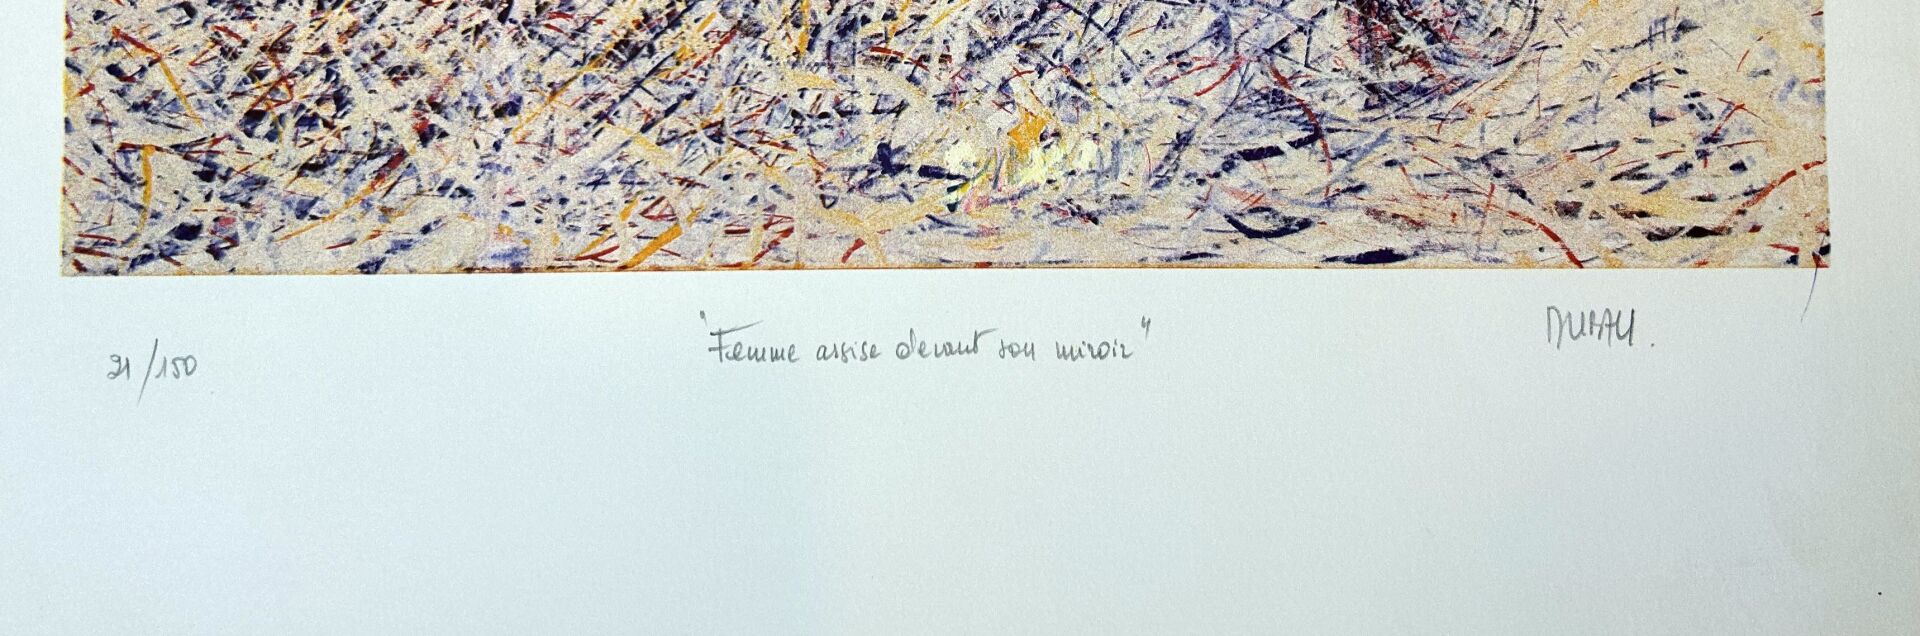 "Femme assise devant son miroir"
21/150